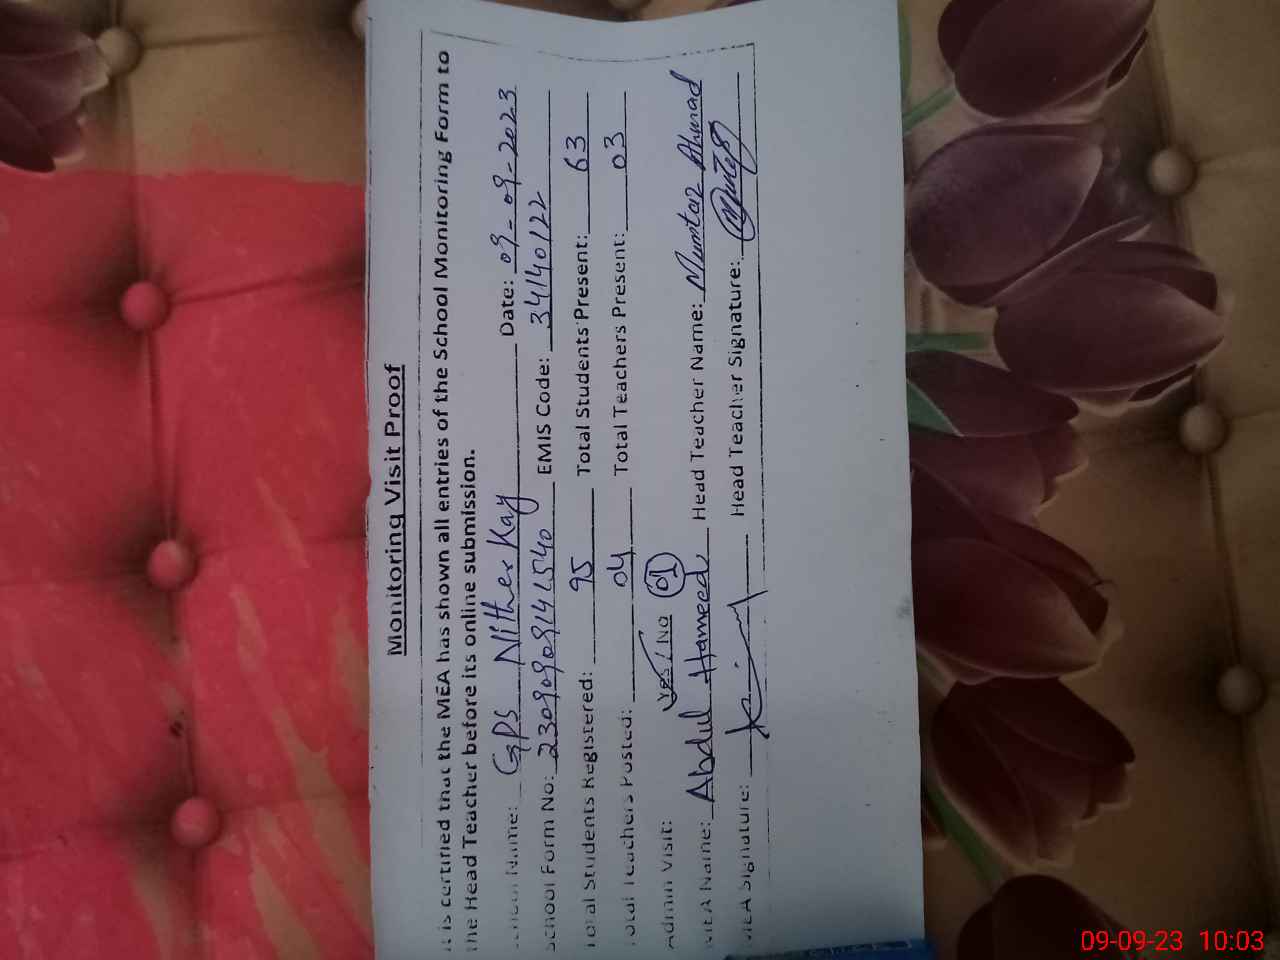 Monitoring Visit Proof
It is certified that the MEA has shown all entries of the School Monitoring Form to
the Head Teacher before its online submission.
School Name: GPS Nither Kay Date: 09-09-2023
School Form No: 23090909141540 EMIS Code: 34140122
Total Students Registered: 95 Total Students Present: 63
Total Teachers Posted: 04 Total Teachers Present: 03
Admin Visit: Yes / No 01
MEA Name: Abdul Hameed Head Teacher Name: Mumtaz Ahmad
MEA Signature: Head Teacher Signature:
09-09-23 10:03